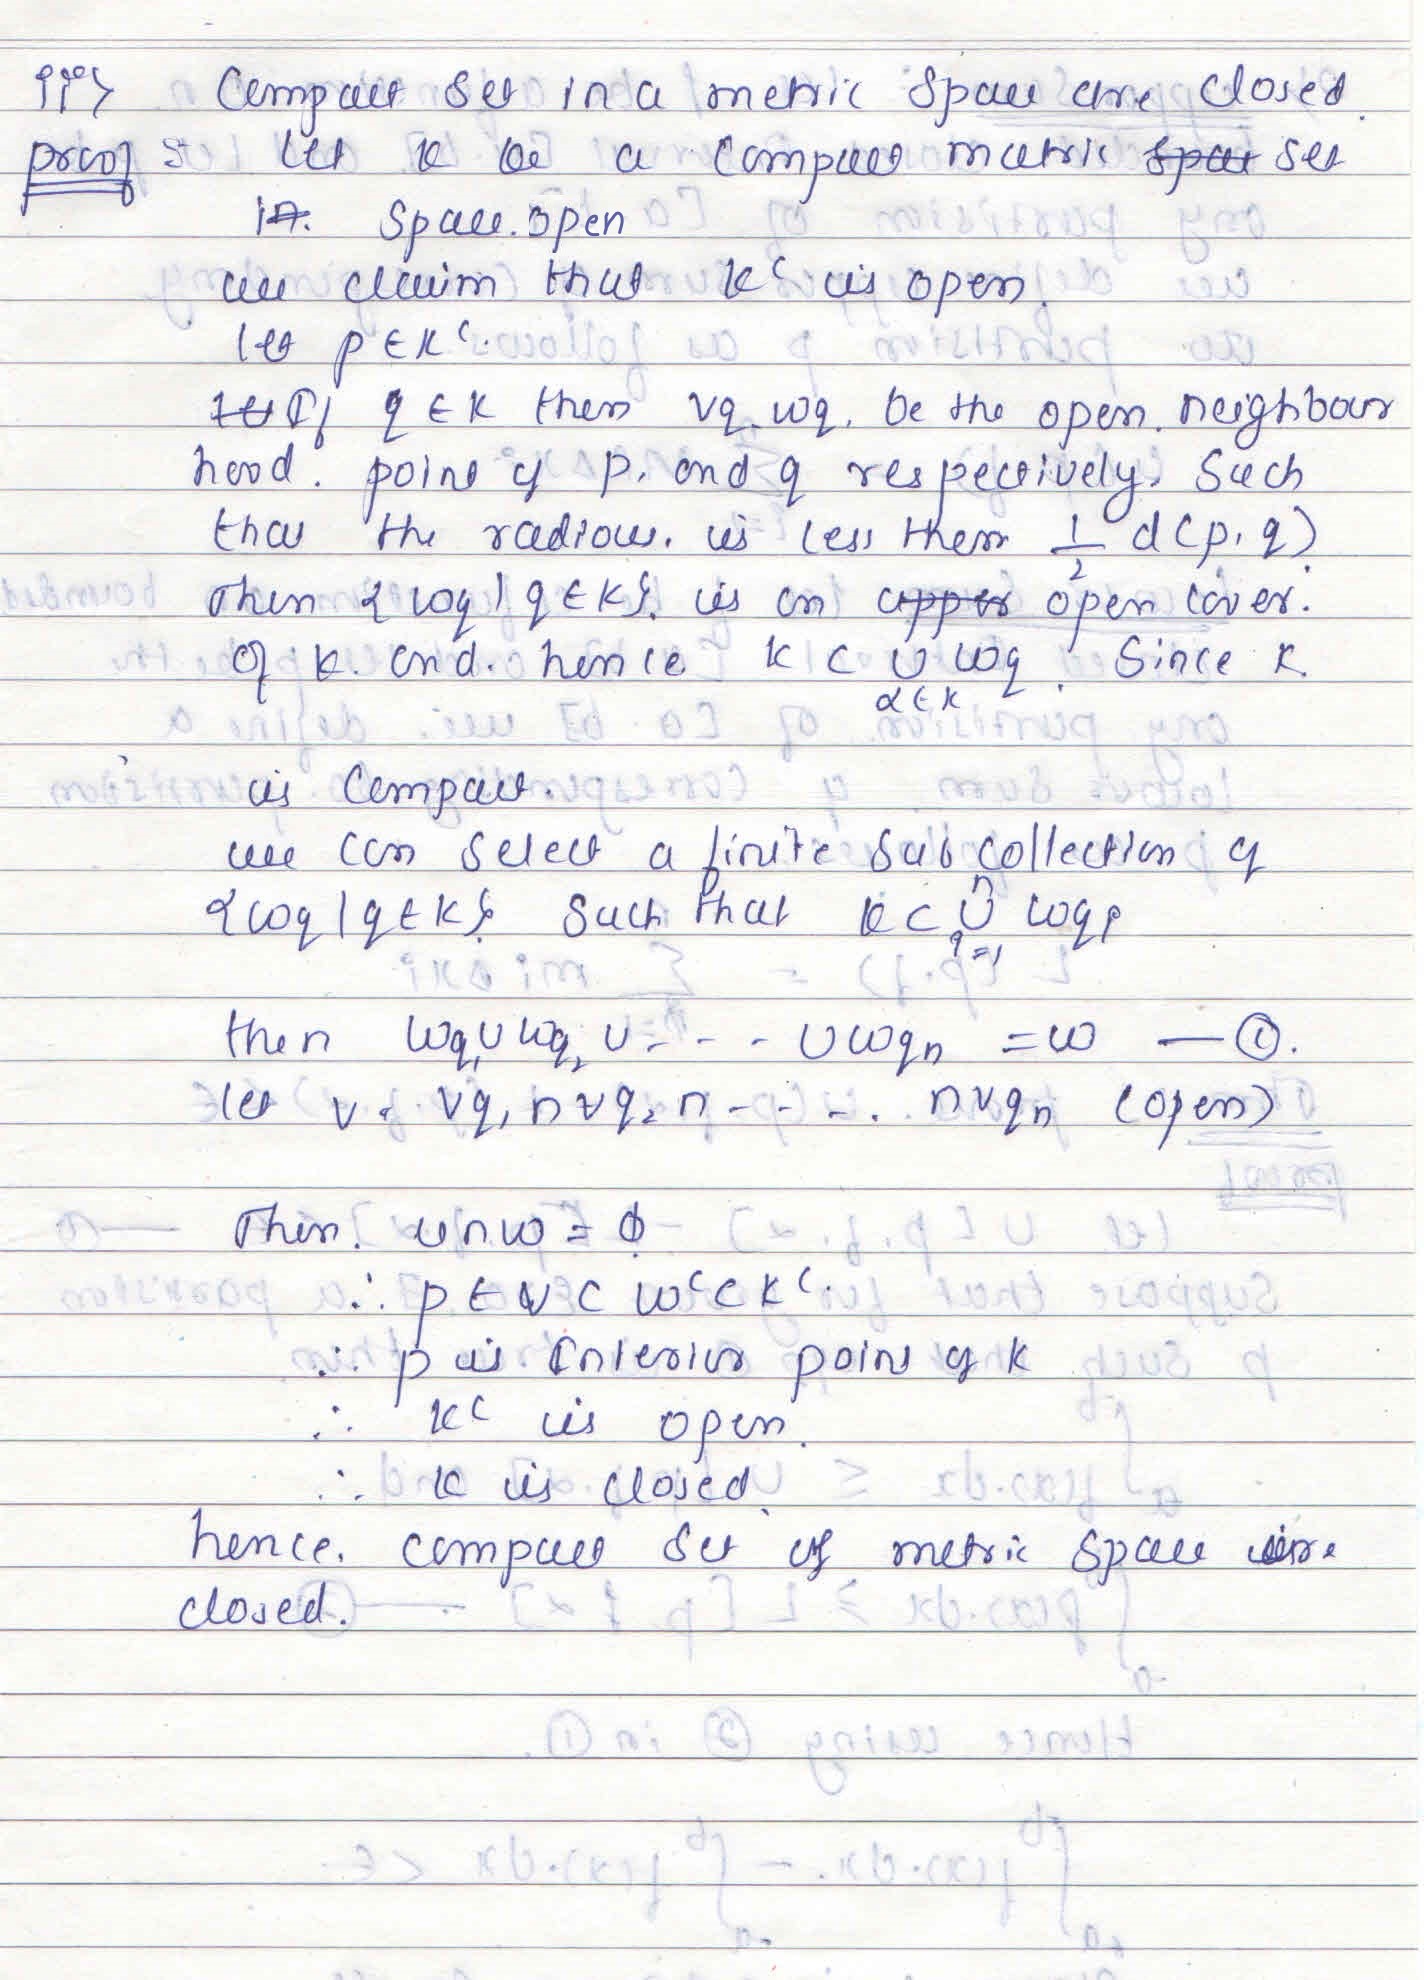 iii> Compact set in a metric space are closed.
proof :- let K be a compact metric set
in. space. open
we claim that K^c is open.
let p ∈ K^c.
If q ∈ K then Vq, Wq, be the open. neighbour
hood. point of p, and q respectively, such
that the radious. is less then 1/2 d(p, q).
Then {Wq | q ∈ K}. is an open cover.
of K. and. hence K ⊂ ∪ Wq. Since K.
α ∈ K
is compact.
we can select a finite sub collection of
{Wq | q ∈ K}. such that K ⊂ n ∪ i=1 Wqi
then Wq1 ∪ Wq2 ∪ - - - ∪ Wqn = W — ①.
let V = Vq1 ∩ Vq2 ∩ - - - . ∩ Vqn (open)
Then. V ∩ W = ϕ
∴ p ∈ V ⊂ W^c ⊂ K^c.
∴ p is Interior point of K
∴ K^c is open.
∴ K is closed.
hence. compact set of metric space are.
closed.